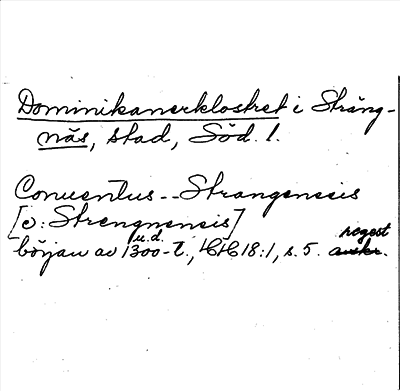 Dominikanerklostret i Sträng-
näs, stad, Söd. l.
Conventus -- Strangensis
[o: Strengnensis]
u.d. regest
början av 1300-t., HH 18:1, s. 5. avskr.